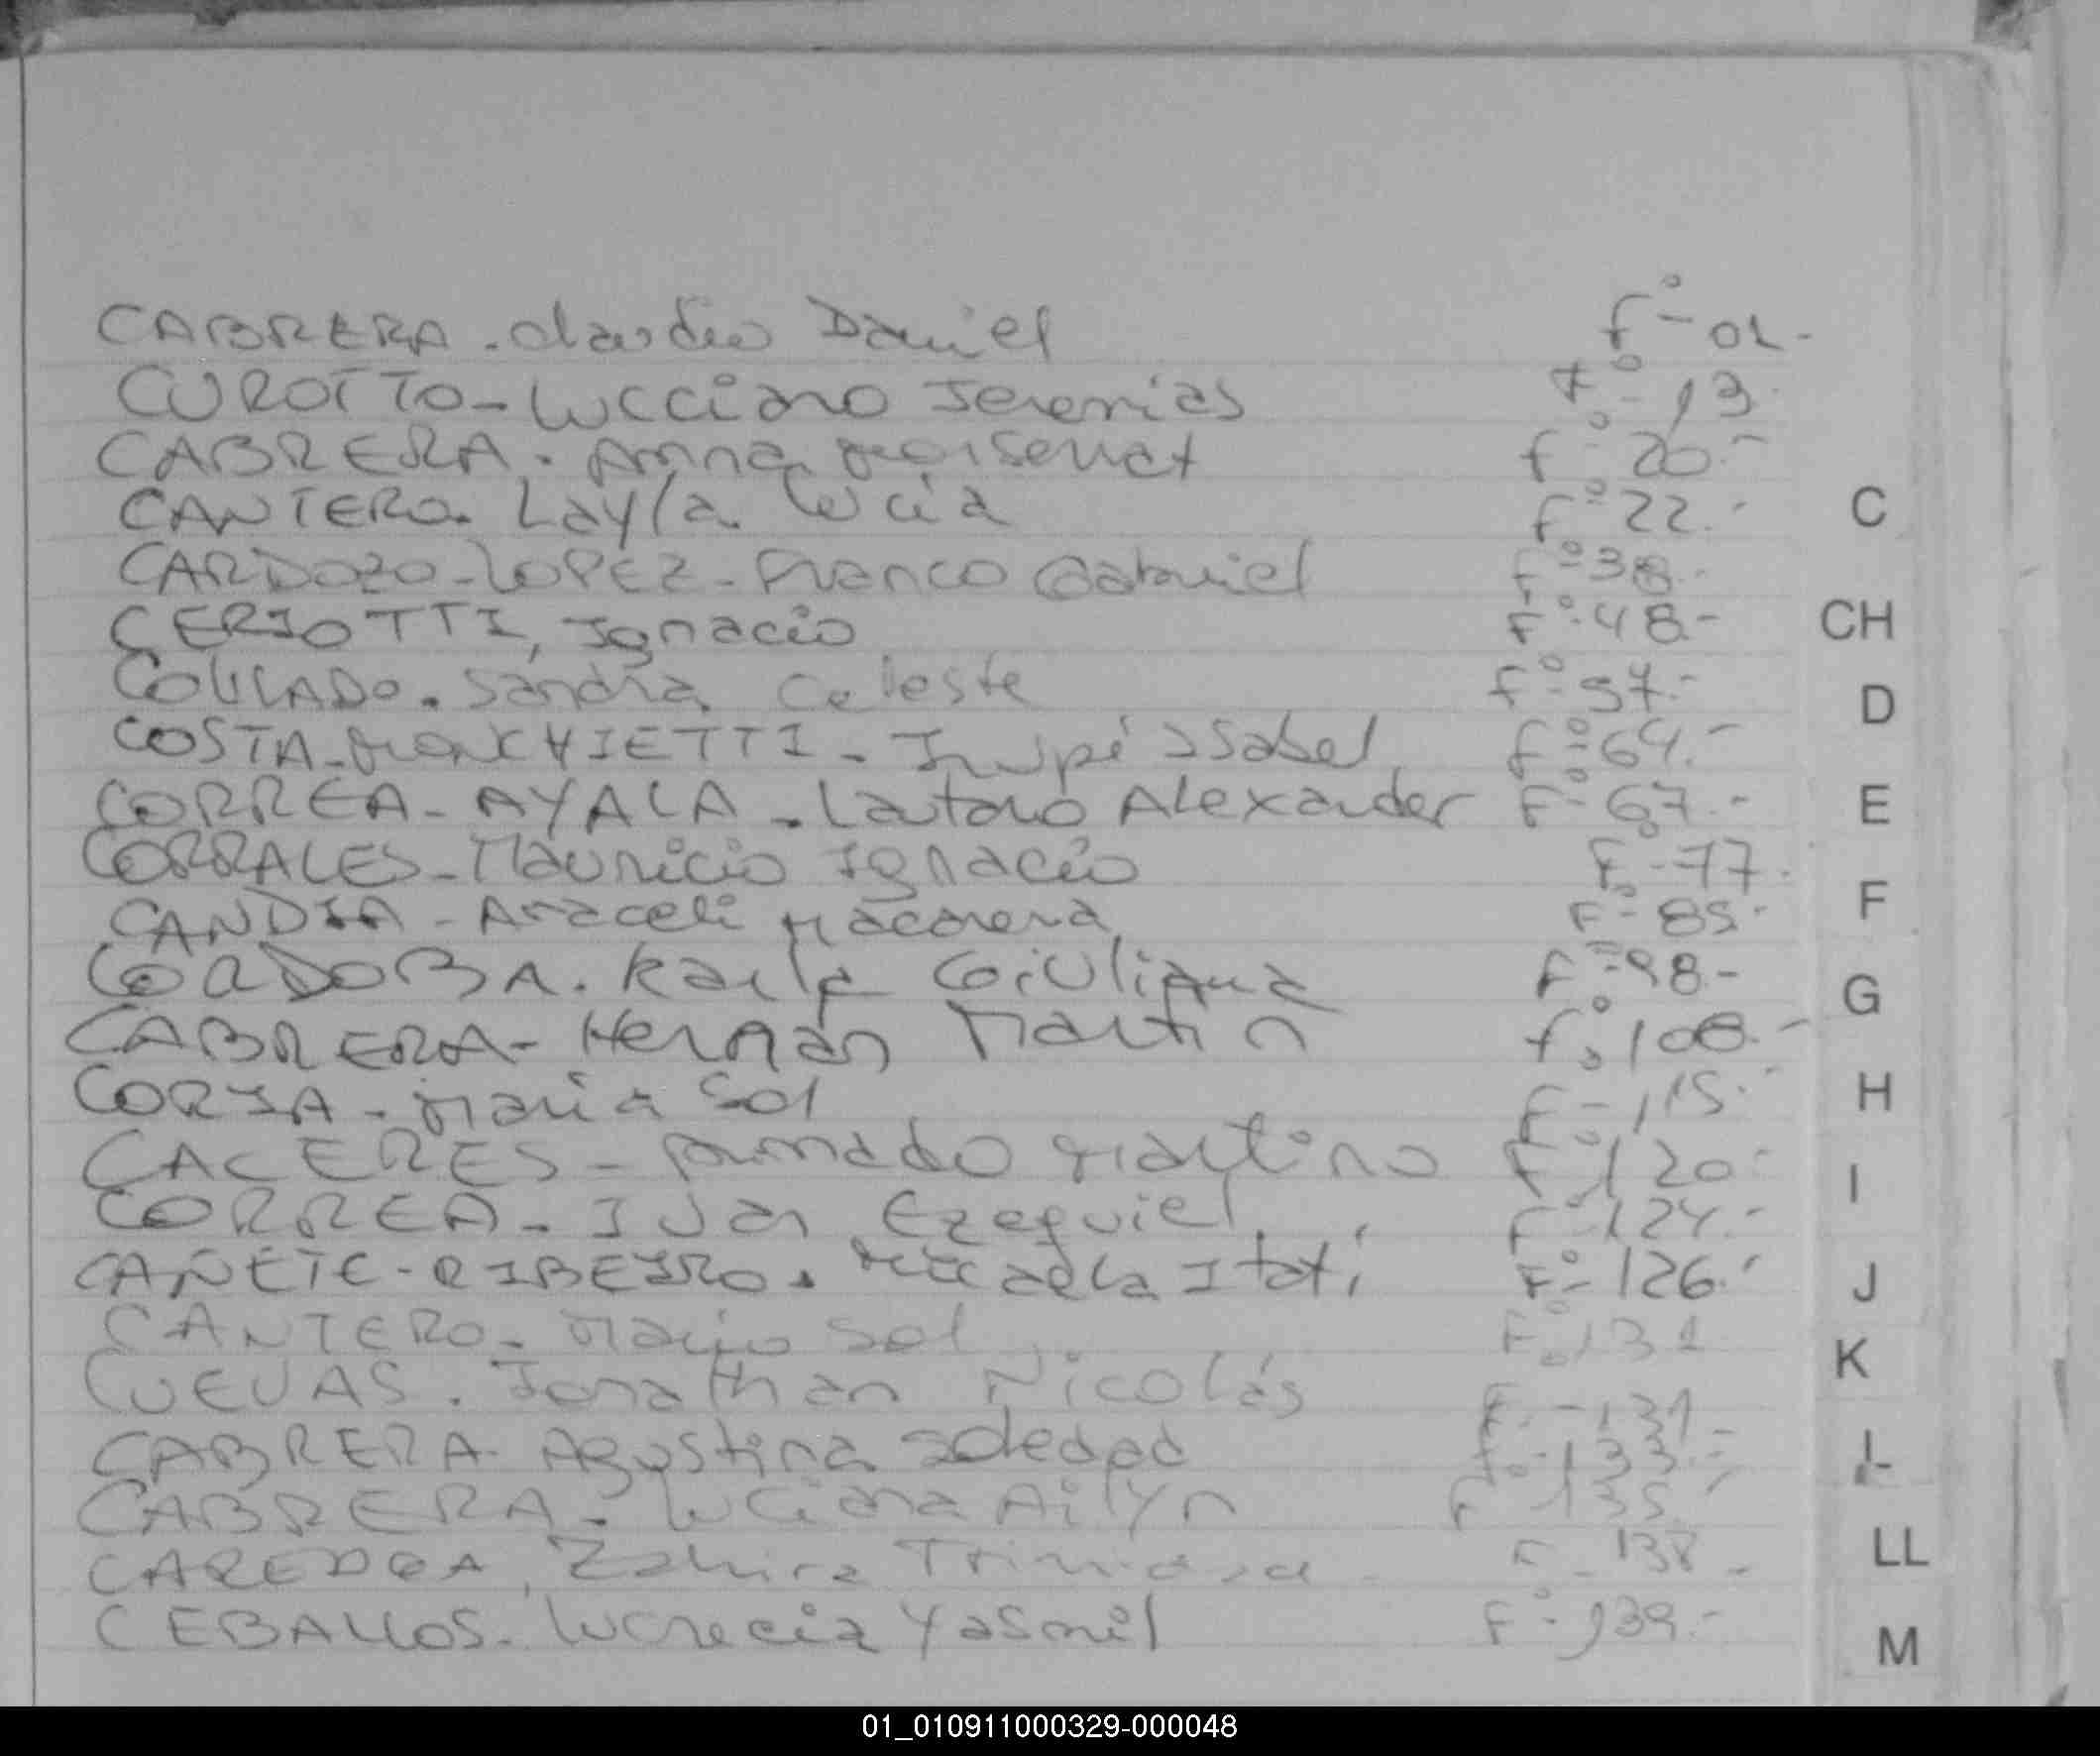 CABRERA - Claudio Daniel f° - 01 -
CUROTTO - Lucciano Jeremias f° - 13
CABRERA - Anna Monserrat f° 20 -
CANTERO - Layla Lucia f° 22 -
CARDOZO - LOPEZ - Franco Gabriel f° 38 -
CERIOTTI, Ignacio F° 48 -
COLLADO - Sandra Celeste f° - 57 -
COSTA - MONCHIETTI - Irupé Issabel f° 64 -
CORREA - AYALA - Lautaro Alexander F° 67 -
CORRALES - Mauricio Ignacio F° - 77 -
CANDIA - Araceli Macarena F° - 85 -
CORDOBA - Karla Giuliana F° 98 -
CABRERA - Hernán Martin f° 108 -
CORIA - Maria Sol F° - 115 -
CACERES - Amado Martino F° 120 -
CORREA - Ivan Ezequiel F° 124 -
CAÑETE - RIBEIRO - Micaela Itatí F° - 126 -
CANTERO - Mario Sol F° 131
CUEVAS - Jonathan Nicolás F° - 131 -
CABRERA - Agustina Soledad f° - 133 -
CABRERA - Luciana Ailyn F° 135 -
Zahira F - 138 -
CEBALLOS - Lucrecia Yasmil F° - 139 -
C
CH
D
E
F
G
H
I
J
K
L
LL
M
01_010911000329-000048